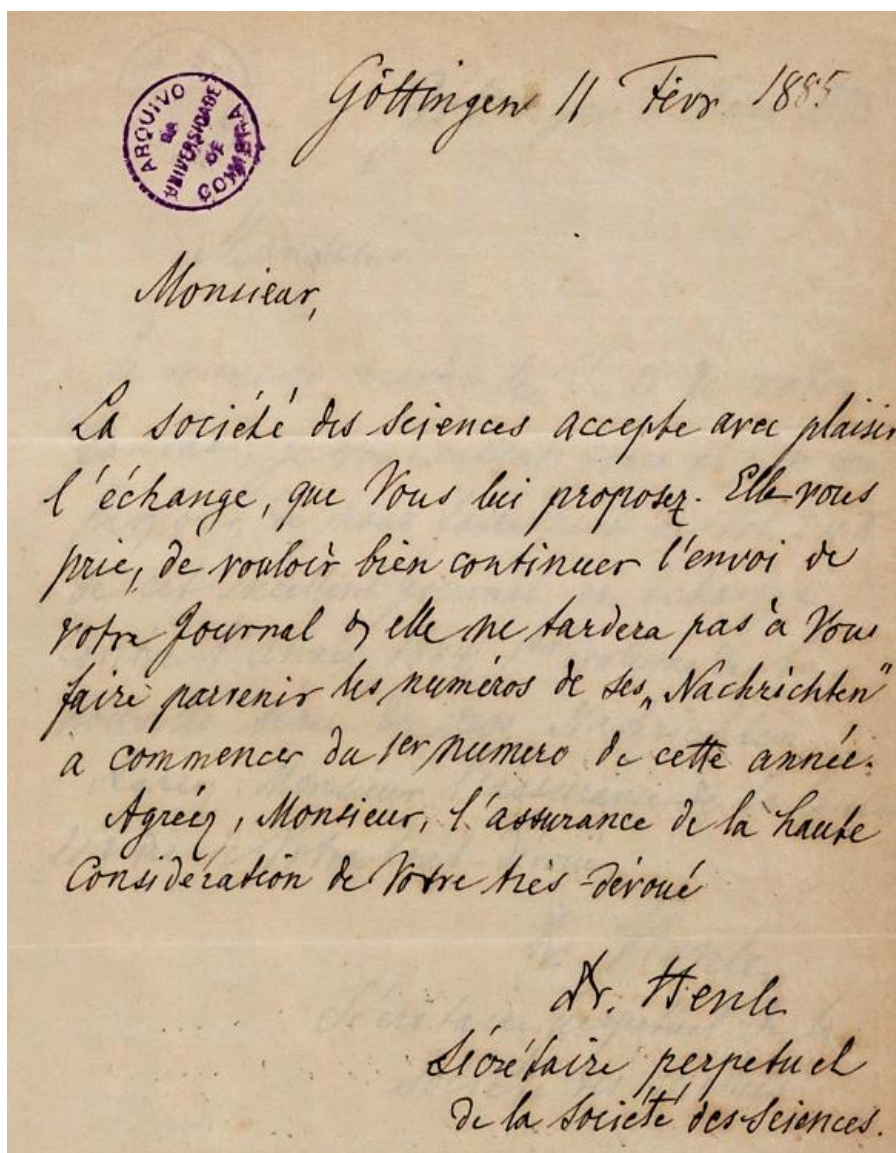 Göttingen 11 Févr 1885
ARQUIVO DA UNIVERSIDADE DE COIMBRA
Monsieur,
La société des sciences accepte avec plaisir
l'échange, que Vous lui proposez. Elle vous
prie, de vouloir bien continuer l'envoi de
votre Journal & elle ne tardera pas à Vous
faire parvenir les numéros de ses „Nachrichten"
a commencer du 1er numero de cette année.
Agréez, Monsieur, l'assurance de la haute
Considération de Votre très-dévoué
Dr. Henle
Sécrétaire perpetuel
de la Société des Sciences.